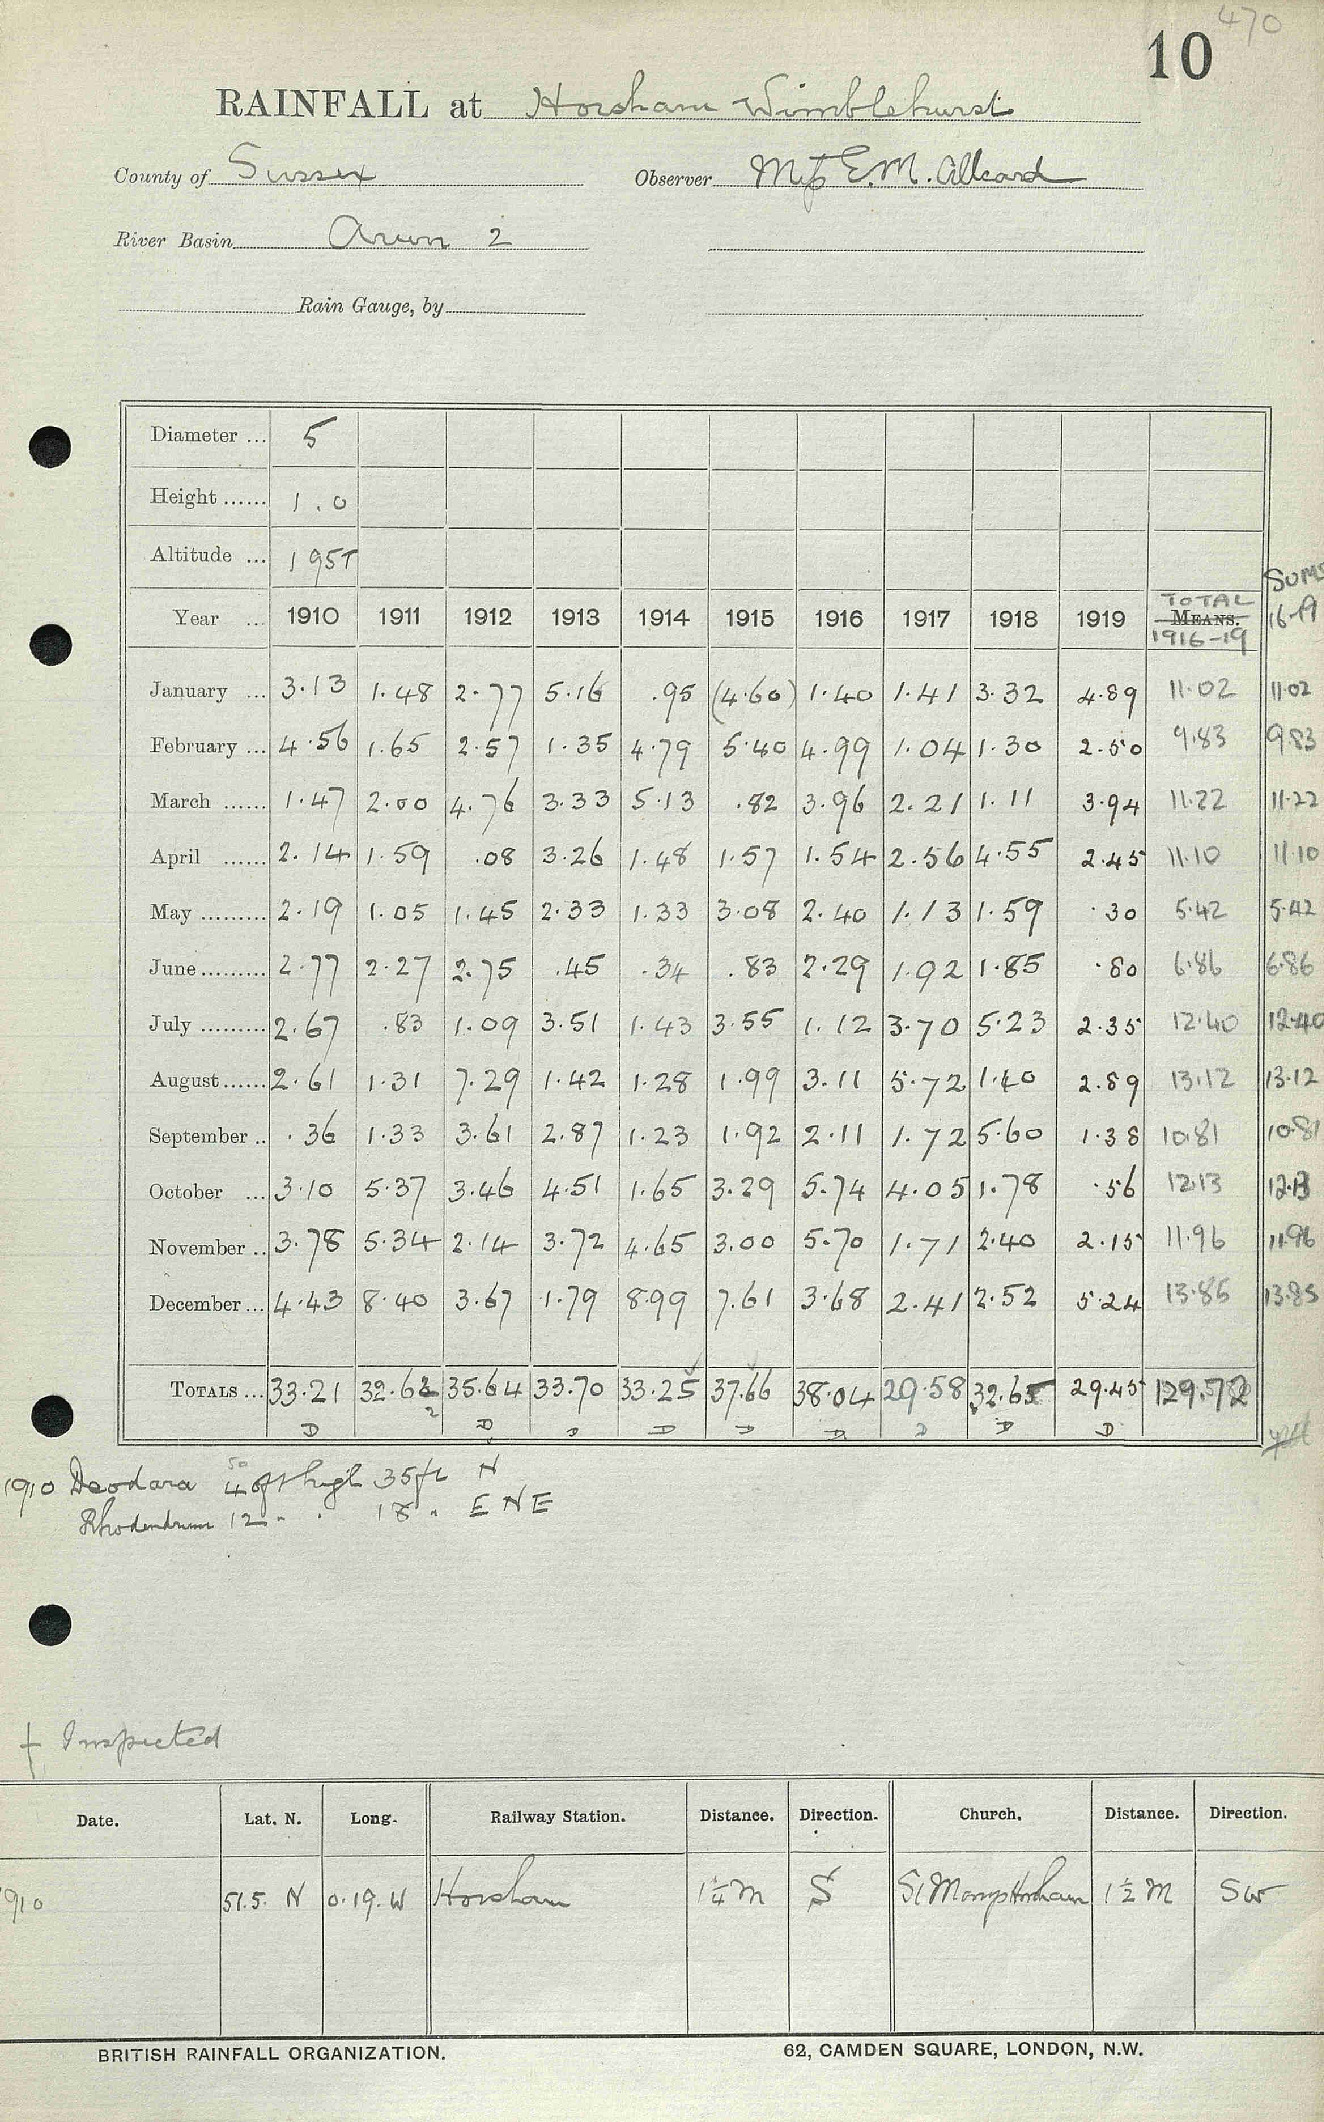 470
10
RAINFALL at Horsham Wimblehurst
County of Sussex Observer E.M. Allcard
River Basin Arun 2
Rain Gauge, by
Diameter ... 5
Height ...... 1.0
Altitude ... 195T
SUMS
Year ... 1910 1911 1912 1913 1914 1915 1916 1917 1918 1919 TOTAL MEANS. 1916-19 16-19
January ... 3.13 1.48 2.77 5.16 .95 (4.60) 1.40 1.41 3.32 4.89 11.02 11.02
February ... 4.56 1.65 2.57 1.35 4.79 5.40 4.99 1.04 1.30 2.50 9.83 9.83
March ...... 1.47 2.00 4.76 3.33 5.13 .82 3.96 2.21 1.11 3.94 11.22 11.22
April ...... 2.14 1.59 .08 3.26 1.48 1.57 1.54 2.56 4.55 2.45 11.10 11.10
May ......... 2.19 1.05 1.45 2.33 1.33 3.08 2.40 1.13 1.59 .30 5.42 5.42
June ......... 2.77 2.27 2.75 .45 .34 .83 2.29 1.92 1.85 .80 6.86 6.86
July ......... 2.67 .83 1.09 3.51 1.43 3.55 1.12 3.70 5.23 2.35 12.40 12.40
August ...... 2.61 1.31 7.29 1.42 1.28 1.99 3.11 5.72 1.40 2.89 13.12 13.12
September .. .36 1.33 3.61 2.87 1.23 1.92 2.11 1.72 5.60 1.38 10.81 10.81
October ... 3.10 5.37 3.46 4.51 1.65 3.29 5.74 4.05 1.78 .56 12.13 12.13
November .. 3.78 5.34 2.14 3.72 4.65 3.00 5.70 1.71 2.40 2.15 11.96 11.96
December ... 4.43 8.40 3.67 1.79 8.99 7.61 3.68 2.41 2.52 5.24 13.85 13.85
TOTALS ... 33.21 32.62 35.64 33.70 33.25 37.66 38.04 29.58 32.65 29.45 129.72
D 2 D D D D D D D D
1910 Deodara 50 40ft high 35ft N
Rhododendrum 12 " " 18 " ENE
† Inspected
Date. Lat. N. Long. Railway Station. Distance. Direction. Church. Distance. Direction.
1910 51.5. N 0.19. W Horsham 1¼ M S St Marys Horsham 1½ M SW
BRITISH RAINFALL ORGANIZATION. 62, CAMDEN SQUARE, LONDON, N.W.